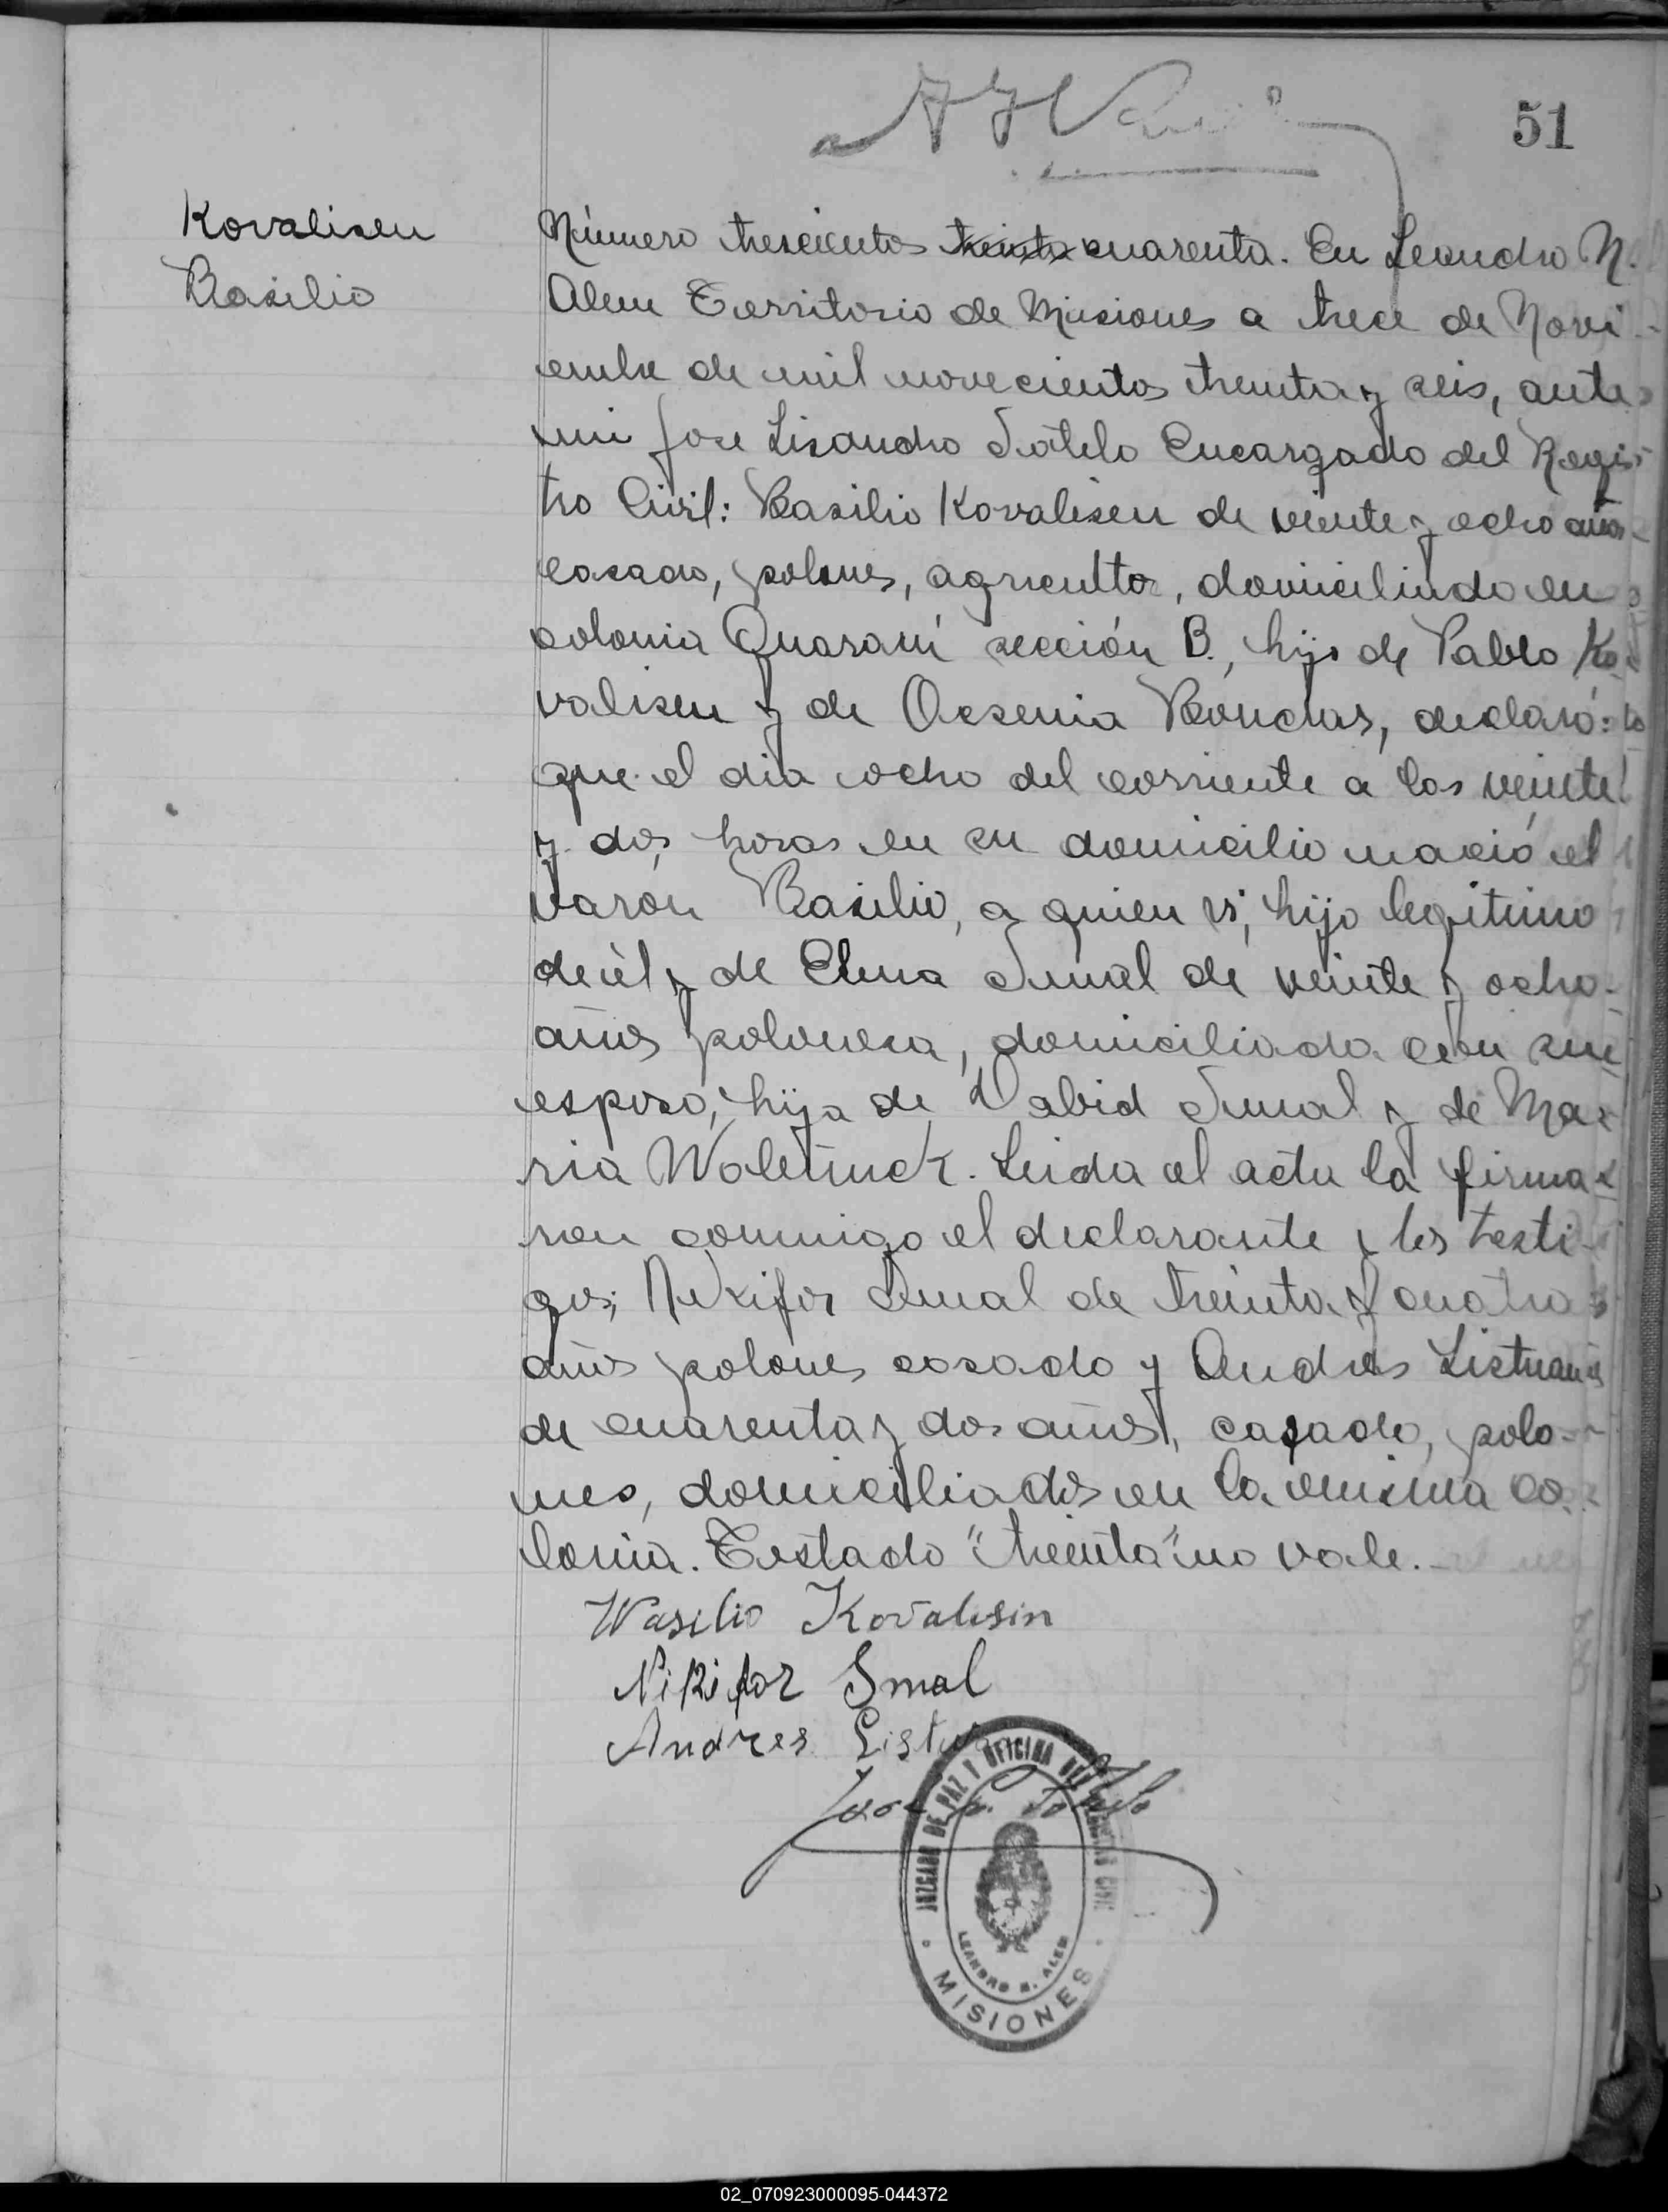 51
Kovalisen
Basilio
Número trescientos treinta cuarenta. En Leandro N.
Alem Territorio de Misiones a trece de Novi-
embre de mil novecientos treinta y seis, ante
mi Jose Lisandro Sotelo Encargado del Regis-
tro Civil: Basilio Kovalisen de veinte y ocho años
casado, polones, agricultor, domiciliado en
colonia Guaraní sección B., hijo de Pablo Ko-
valisen y de Oxsenia Bonchar, declaró:
que el dia ocho del corriente a las veinte
y dos horas en su domicilio nació el
varón Basilio, a quien ví, hijo legitimo
de él y de Elena Smal de veinte y ocho
años polonesa, domiciliada con su
esposo, hija de Dabid Smal y de Ma-
ria . Leida el acta la firma-
ron conmigo el declarante y los testi-
gos; Nikifor Smal de treinta y cuatro
años polones casado y Andres
de cuarenta y dos años, casado, polo-
nes, domiciliados en la misma co-
lonia. Testado "treinta" no vale.
Wasilio Kovalisin
Nikifor Smal
Andres
Jose L. Sotelo
JUZGADO DE PAZ Y OFICINA DEL REGISTRO CIVIL
LEANDRO N. ALEM
MISIONES
02_070923000095-044372